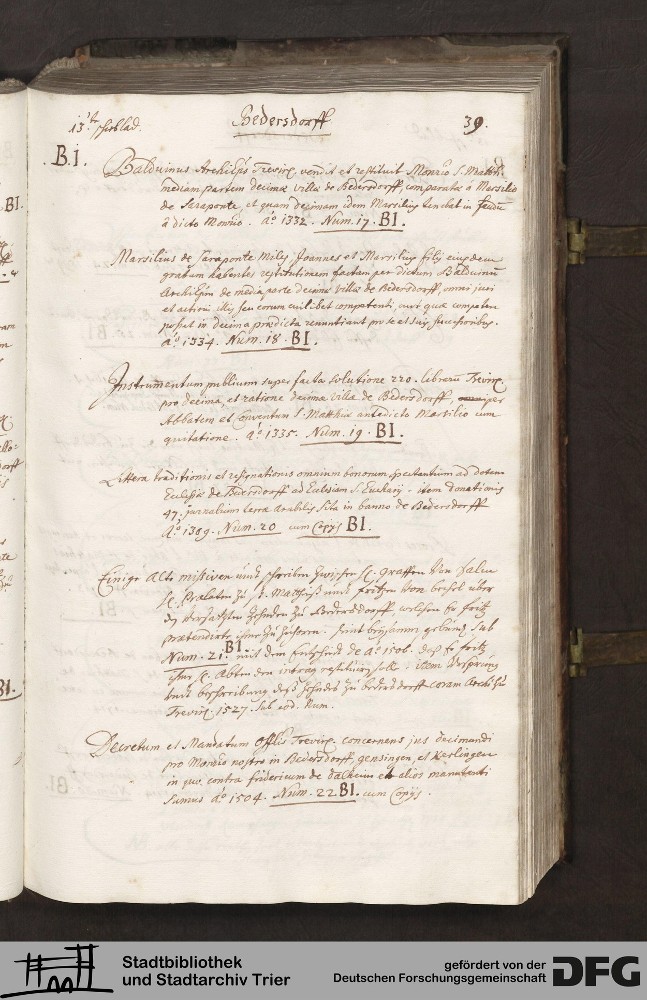 13te schoblad. Bedersdorff 39.
B.I.
Balduinus Archiēps Trevir. vendit et restituit Monrio S. Matth.
mediam partem decimæ villæ de Bedersdorff, comparatæ â Marsilio
de Saraponte, et quam decimam idem Marsilius tenebat in feudū
â dicto Monrio. aō. 1332. Num. 17. BI.
Marsilius de Saraponte Miles, Joannes et Marsilius filij eiusdem
gratam habentes restitutionem factam per dictum Balduinū
Archiēpm de media parte decimæ villæ de Bedersdorff, omni juri
et actioni illis seu eorum cuilibet competenti, aut quæ competere
posset in decima prædicta renuntiant pro se et suis successoribus.
aō. 1334. Num. 18. BI.
Instrumentum publicum super facta solutione 220. librarū Trevir.
pro decima et ratione decimæ villæ de Bedersdorff, per
Abbatem et Conventum S. Matthiæ antedicto Marsilio cum
quitatione. aō. 1335. Num. 19. BI.
Littera traditionis et resignationis omnium bonorum spectantium ad dotem
Ecclesiæ de Bedersdorff ad Ecclesiam S. Eucharij. item donationis
47. jurnalium terræ arabilis sita in banno de Bedersdorff
Aō. 1309. Num. 20 cum Copijs BI.
Einige Alte missiven undt schreiben zwischen H. Graffen Von Salm
H. Prælaten zu St. Matthiæs undt fritzen Von
Zehnden zu Bedersdorff, welchen Er fritz
prætendirte ihme zu
Num. 21. BI. mit dem Entscheid de Aō 1506. daß Er fritz
ihme H. Abten den
undt beschreibung deß Zehnds zu Bedersdorff coram
Trevir. 1527. sub eod. Num.
Decretum et Mandatum Offlis Trevir. concernens jus decimandi
pro Monrio nostro in Bedersdorff, gensingen, et Kerlingen
in quo contra fridericum de et alios manutenti
sumus aō 1504. Num. 22 BI. cum Copijs.
BI.
BI.
Stadtbibliothek
und Stadtarchiv Trier
gefördert von der
Deutschen Forschungsgemeinschaft
DFG